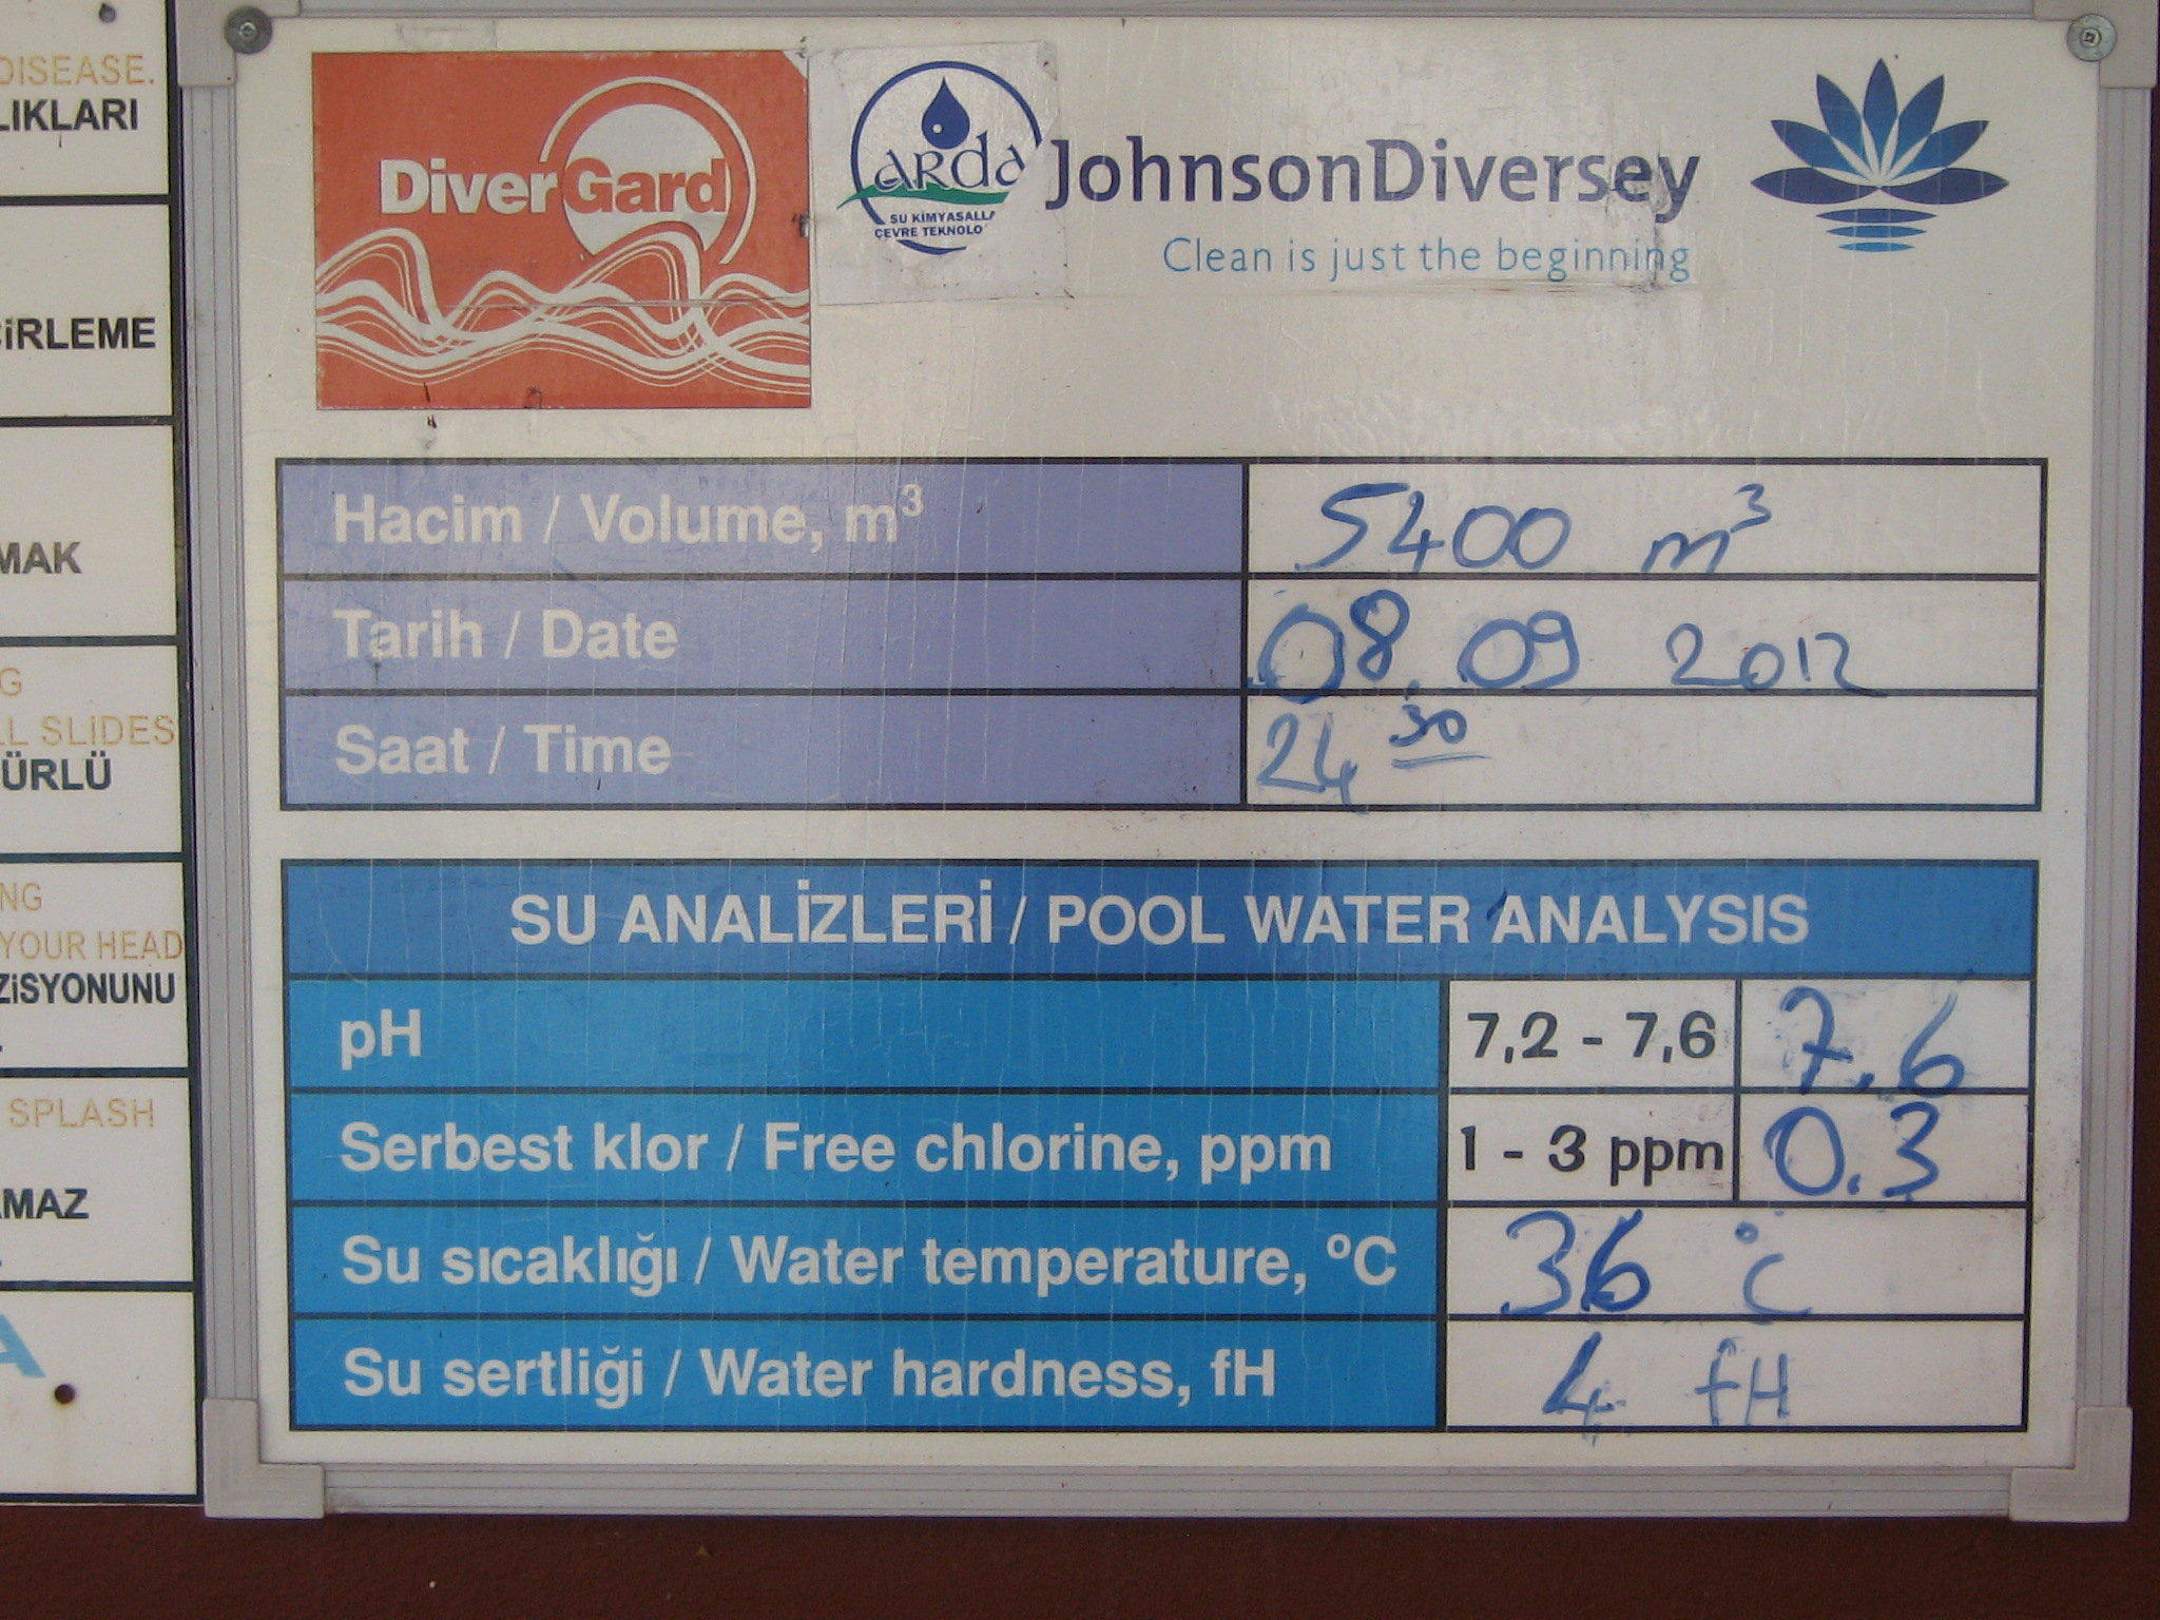 DISEASE.
LIKLARI
ÇİRLEME
MAK
G
LL SLIDES
ÜRLÜ
NG
YOUR HEAD
ZİSYONUNU
SPLASH
MAZ
A
DiverGard
ARda
SU KİMYASALL
ÇEVRE TEKNOLO
JohnsonDiversey
Clean is just the beginning
Hacim / Volume, m³ 5400 m³
Tarih / Date 08.09 2012
Saat / Time 24 30
SU ANALİZLERİ / POOL WATER ANALYSIS
pH 7,2 - 7,6 7.6
Serbest klor / Free chlorine, ppm 1 - 3 ppm 0.3
Su sıcaklığı / Water temperature, ºC 36 °C
Su sertliği / Water hardness, fH 4 fH